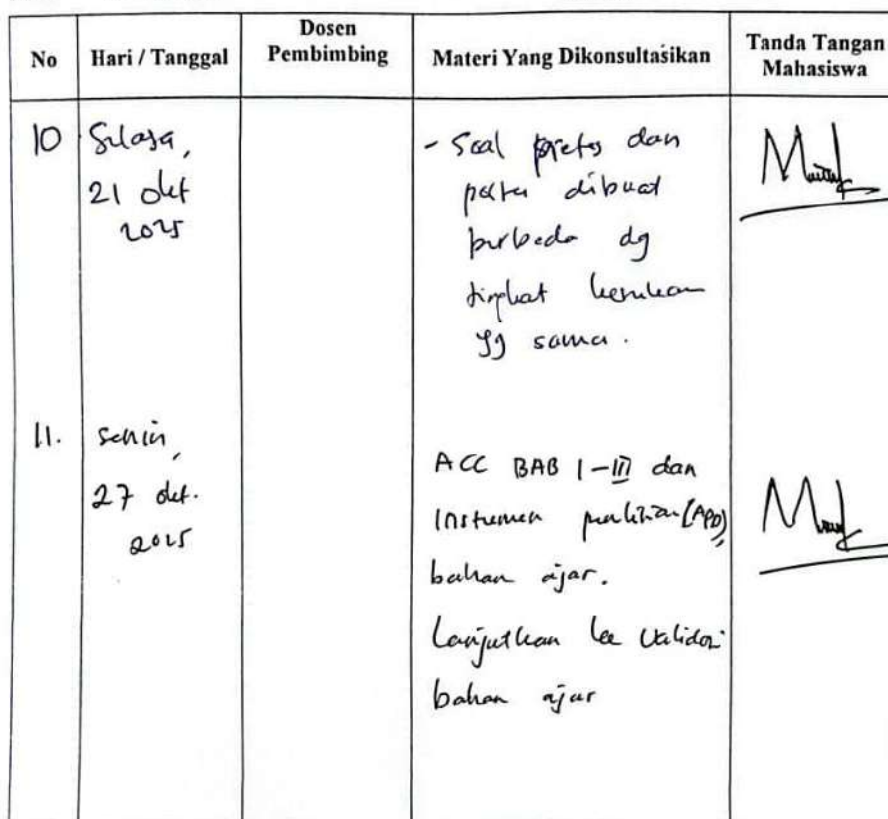 No
Hari / Tanggal
Dosen
Pembimbing
Materi Yang Dikonsultasikan
Tanda Tangan
Mahasiswa
10
Selasa,
21 Okt
2025
- Soal pretes dan
postes dibuat
berbeda dg
tingkat kesukaran
yg sama.
11.
Senin,
27 Okt.
2025
ACC BAB I-III dan
Instrumen penelitian (APD),
bahan ajar.
Lanjutkan ke Validasi
bahan ajar